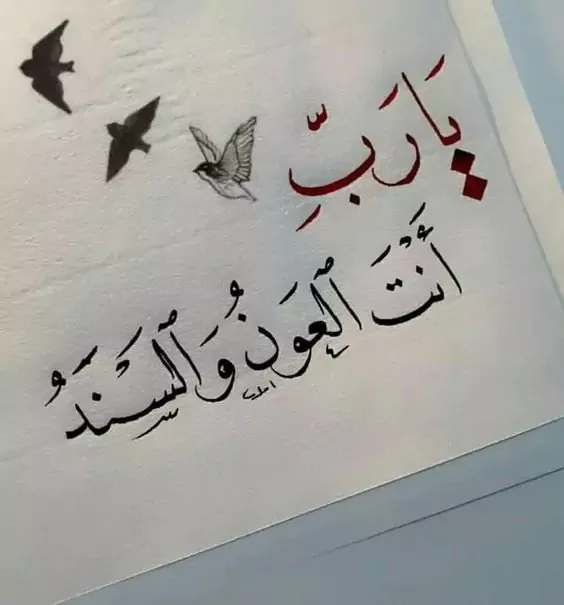 يَا رَبِّ
أَنْتَ ٱلعَوَنُ وَٱلسَّنَدُ